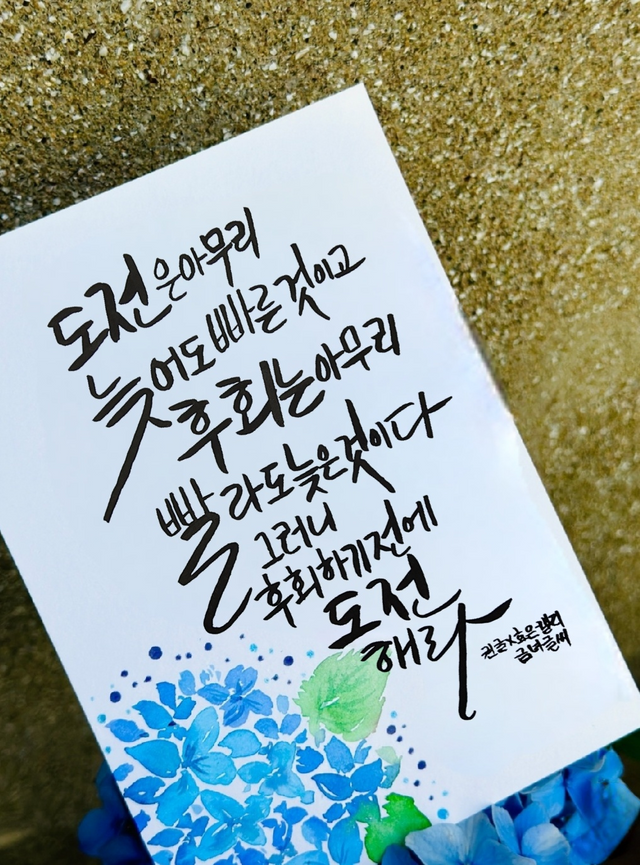 도전은아무리
늦어도빠른것이고
후회는아무리
빨라도늦은것이다
그러니
후회하기전에
도전
해라
귄글x효은캘리
금벼글씨